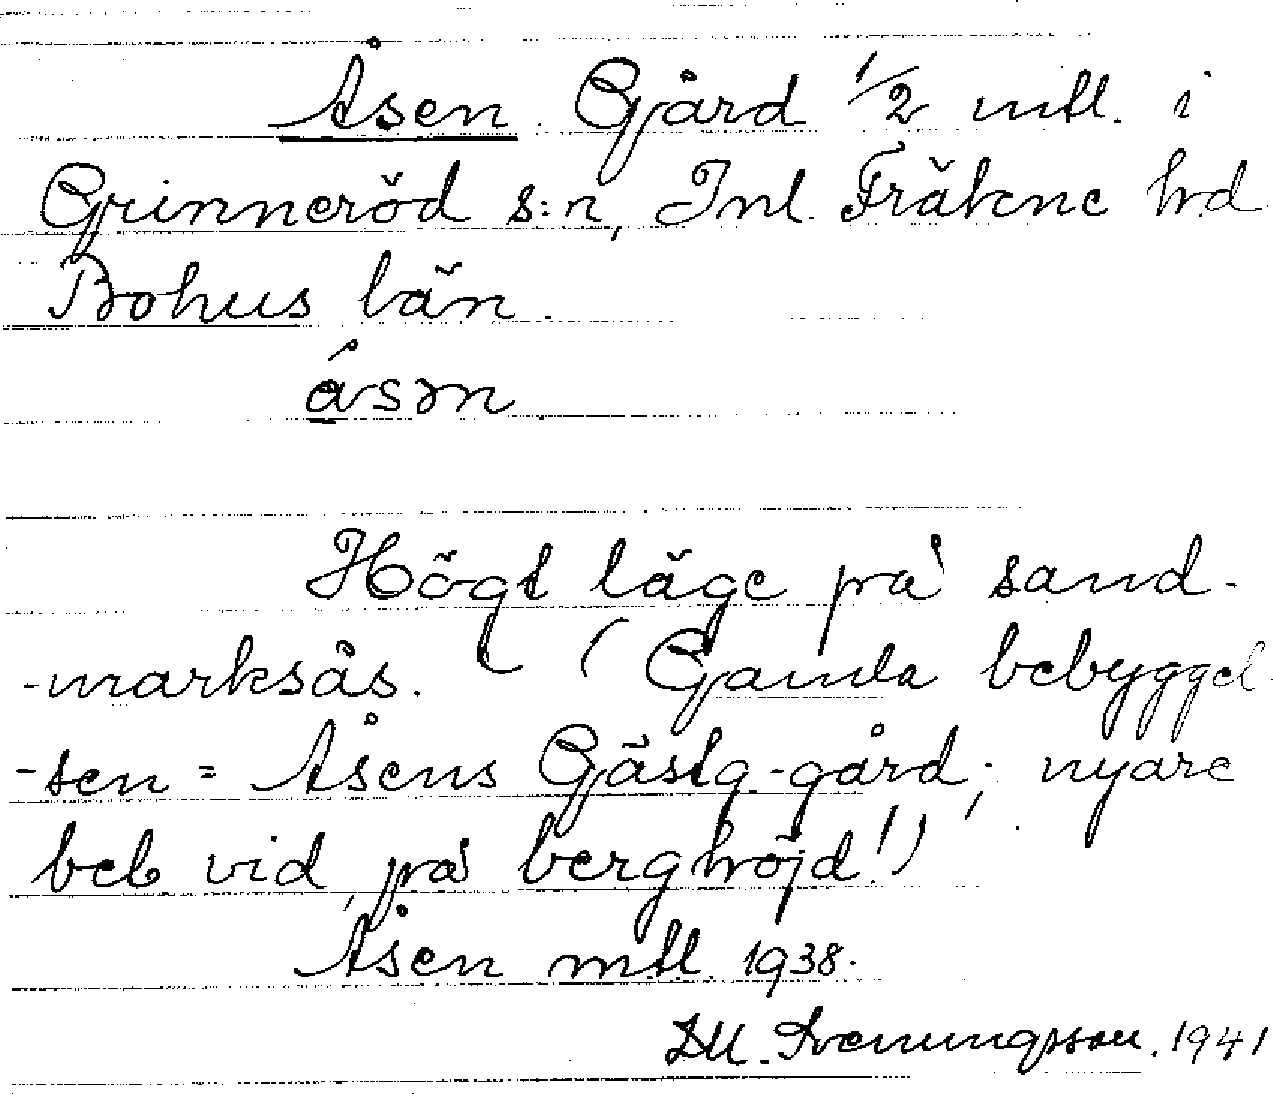 Åsen Gård 1/2 mtl. i
Grinneröd s:n, Inl. Fräkne hd
Bohus län.
åsən
Högt läge på sand-
-marksås. (Gamla bebyggel-
-sen = Åsens Gästg.-gård; nyare
beb vid på berghöjd!)
Åsen mtl. 1938.
Svenungsson. 1941